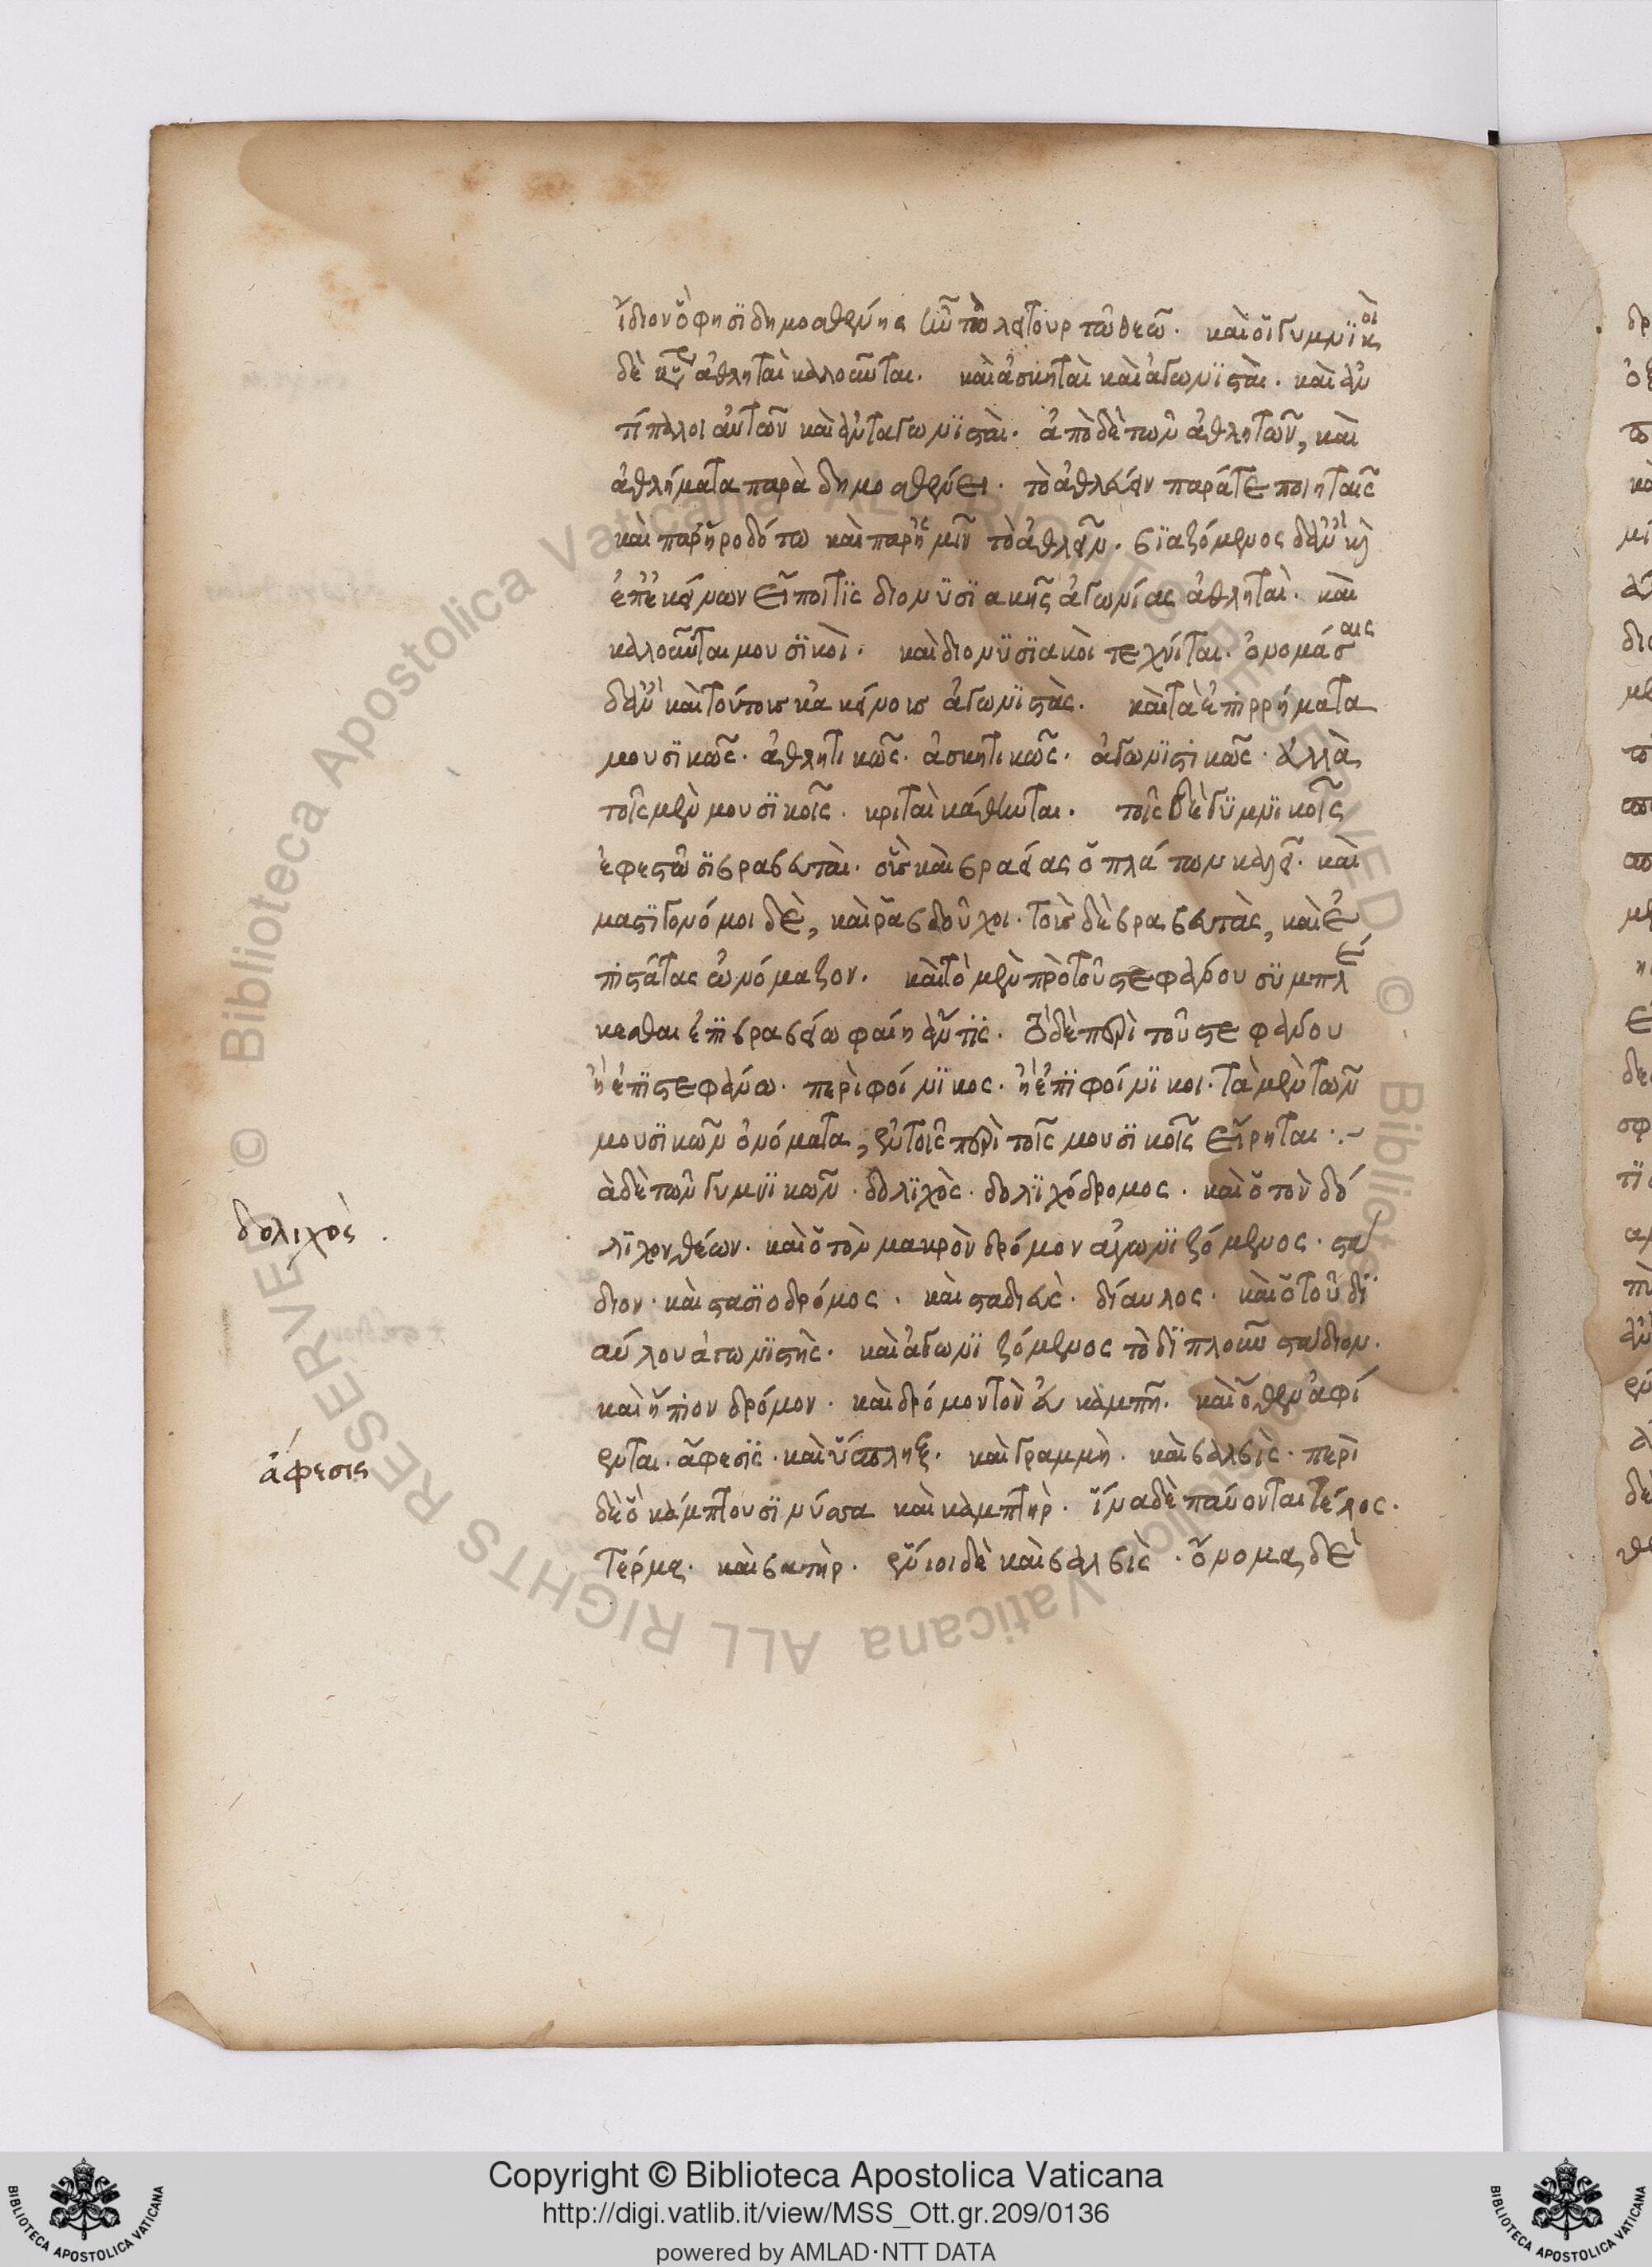 ἴδιον ὅ φησι δημοσθένης ἐν τῶ λειτουργ τῶ θεῶ. καὶ οἱ γυμνικοὶ
δὲ κ αὖ ἀθληταὶ καλοῦνται. καὶ ἀσκηταὶ καὶ ἀγωνισταὶ. καὶ ἀν
τίπαλοι αὐτῶν καὶ ἀνταγωνισταὶ. ἀπὸ δὲ τῶν ἀθλητῶν, καὶ
ἀθλήματα παρὰ δημοσθένει. τὸ ἀθλεύειν παρά τε ποιηταῖς
καὶ παρ' ἡροδότω καὶ παρ' ἡμῖν τὸ ἀθλεῖν. βιαζόμενος δ' ἂν κὶ
ἐπ' ἐκείνων εἴποι τις διονυσιακῆς ἀγωνίας ἀθληταὶ. καὶ
καλοῦνται μουσικοὶ. καὶ διονυσιακοὶ τεχνίται. ὀνομάσαις
δ' ἂν καὶ τούτοις κἀκείνοις ἀγωνιστὰς. καὶ τὰ ἐπιρρήματα
μουσικῶς. ἀθλητικῶς. ἀσκητικῶς. ἀγωνιστικῶς. ἀλλὰ
τοῖς μὲν μουσικοῖς. κριταὶ κάθηνται. τοῖς δὲ γυμνικοῖς
ἐφεστῶσι βραβευταὶ. οὓς καὶ βραβέας ὁ πλάτων καλεῖ. καὶ
μαστιγονόμοι δὲ, καὶ ῥαβδοῦχοι. τοὺς δὲ βραβευτὰς, καὶ ἐ
πιστάτας ὠνόμαζον. καὶ τὸ μὲν πρὸ τοῦ στεφάνου συμπλέ
κεσθαι ἐπὶ βραβείω φαίη ἄν τις. ὁ δὲ περὶ τοῦ στεφάνου
ἢ ἐπὶ στεφάνω. περὶ φοίνικος. ἢ ἐπὶ φοίνικι. τὰ μὲν τῶν
μουσικῶν ὀνόματα, ἐν τοῖς περὶ τοῖς μουσικοῖς εἴρηται.
ἃ δὲ τῶν γυμνικῶν. δολιχὸς. δολιχόδρομος. καὶ ὁ τὸν δό
λιχον θέων. καὶ ὁ τὸν μακρὸν δρόμον ἀγωνιζόμενος. στά
διον. καὶ στασιοδρόμος. καὶ σταδιεὺς. δίαυλος. καὶ ὁ τοῦ δι
αύλου ἀγωνιστὴς. καὶ ἀγωνιζόμενος τὸ διπλοῦν στάδιον.
καὶ ἤπιον δρόμον. καὶ δρόμον τὸν ἐν καμπῆ. καὶ ὅθεν ἀφί
ενται. ἄφεσις. καὶ ὕσπληξ. καὶ γραμμὴ. καὶ βαλβὶς. περὶ
δὲ ὃ κάμπτουσι νύσσα καὶ καμπτὴρ. ἵνα δὲ παύονται τέλος.
τέρμα. καὶ βατὴρ. ἔνιοι δὲ καὶ βαλβὶς. ὄνομα δὲ
δολιχὸς.
ἄφεσις
Copyright © Biblioteca Apostolica Vaticana
http://digi.vatlib.it/view/MSS_Ott.gr.209/0136
powered by AMLAD·NTT DATA